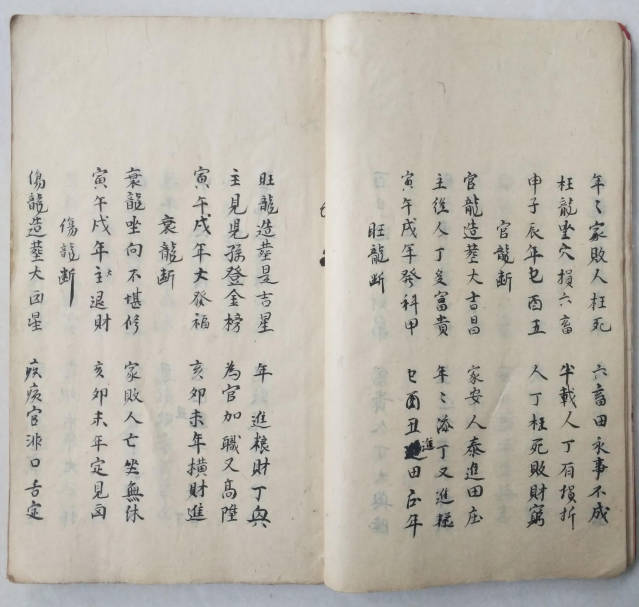 年〻家敗人枉死　六畜田永事不成
枉龍坐穴損六畜　半載人丁有損折
申子辰年巳酉丑　人丁枉死敗財窮
官龍斷
官龍造塟大吉昌　家安人泰進田庄
主後人丁多富貴　年〻添丁又進粮
寅午戌年發科甲　巳酉丑進田庄年
旺龍斷
旺龍造塟是吉星　年進粮財丁興
主見見孫登金榜　為官加職又高陞
寅午戌年大發福　亥卯未年橫財進
衰龍斷
衰龍坐向不堪修　家敗人亡坐無休
寅午戌年主退財　亥卯未年定見凶
傷龍斷
傷龍造塟大凶星　疾病官非口舌定